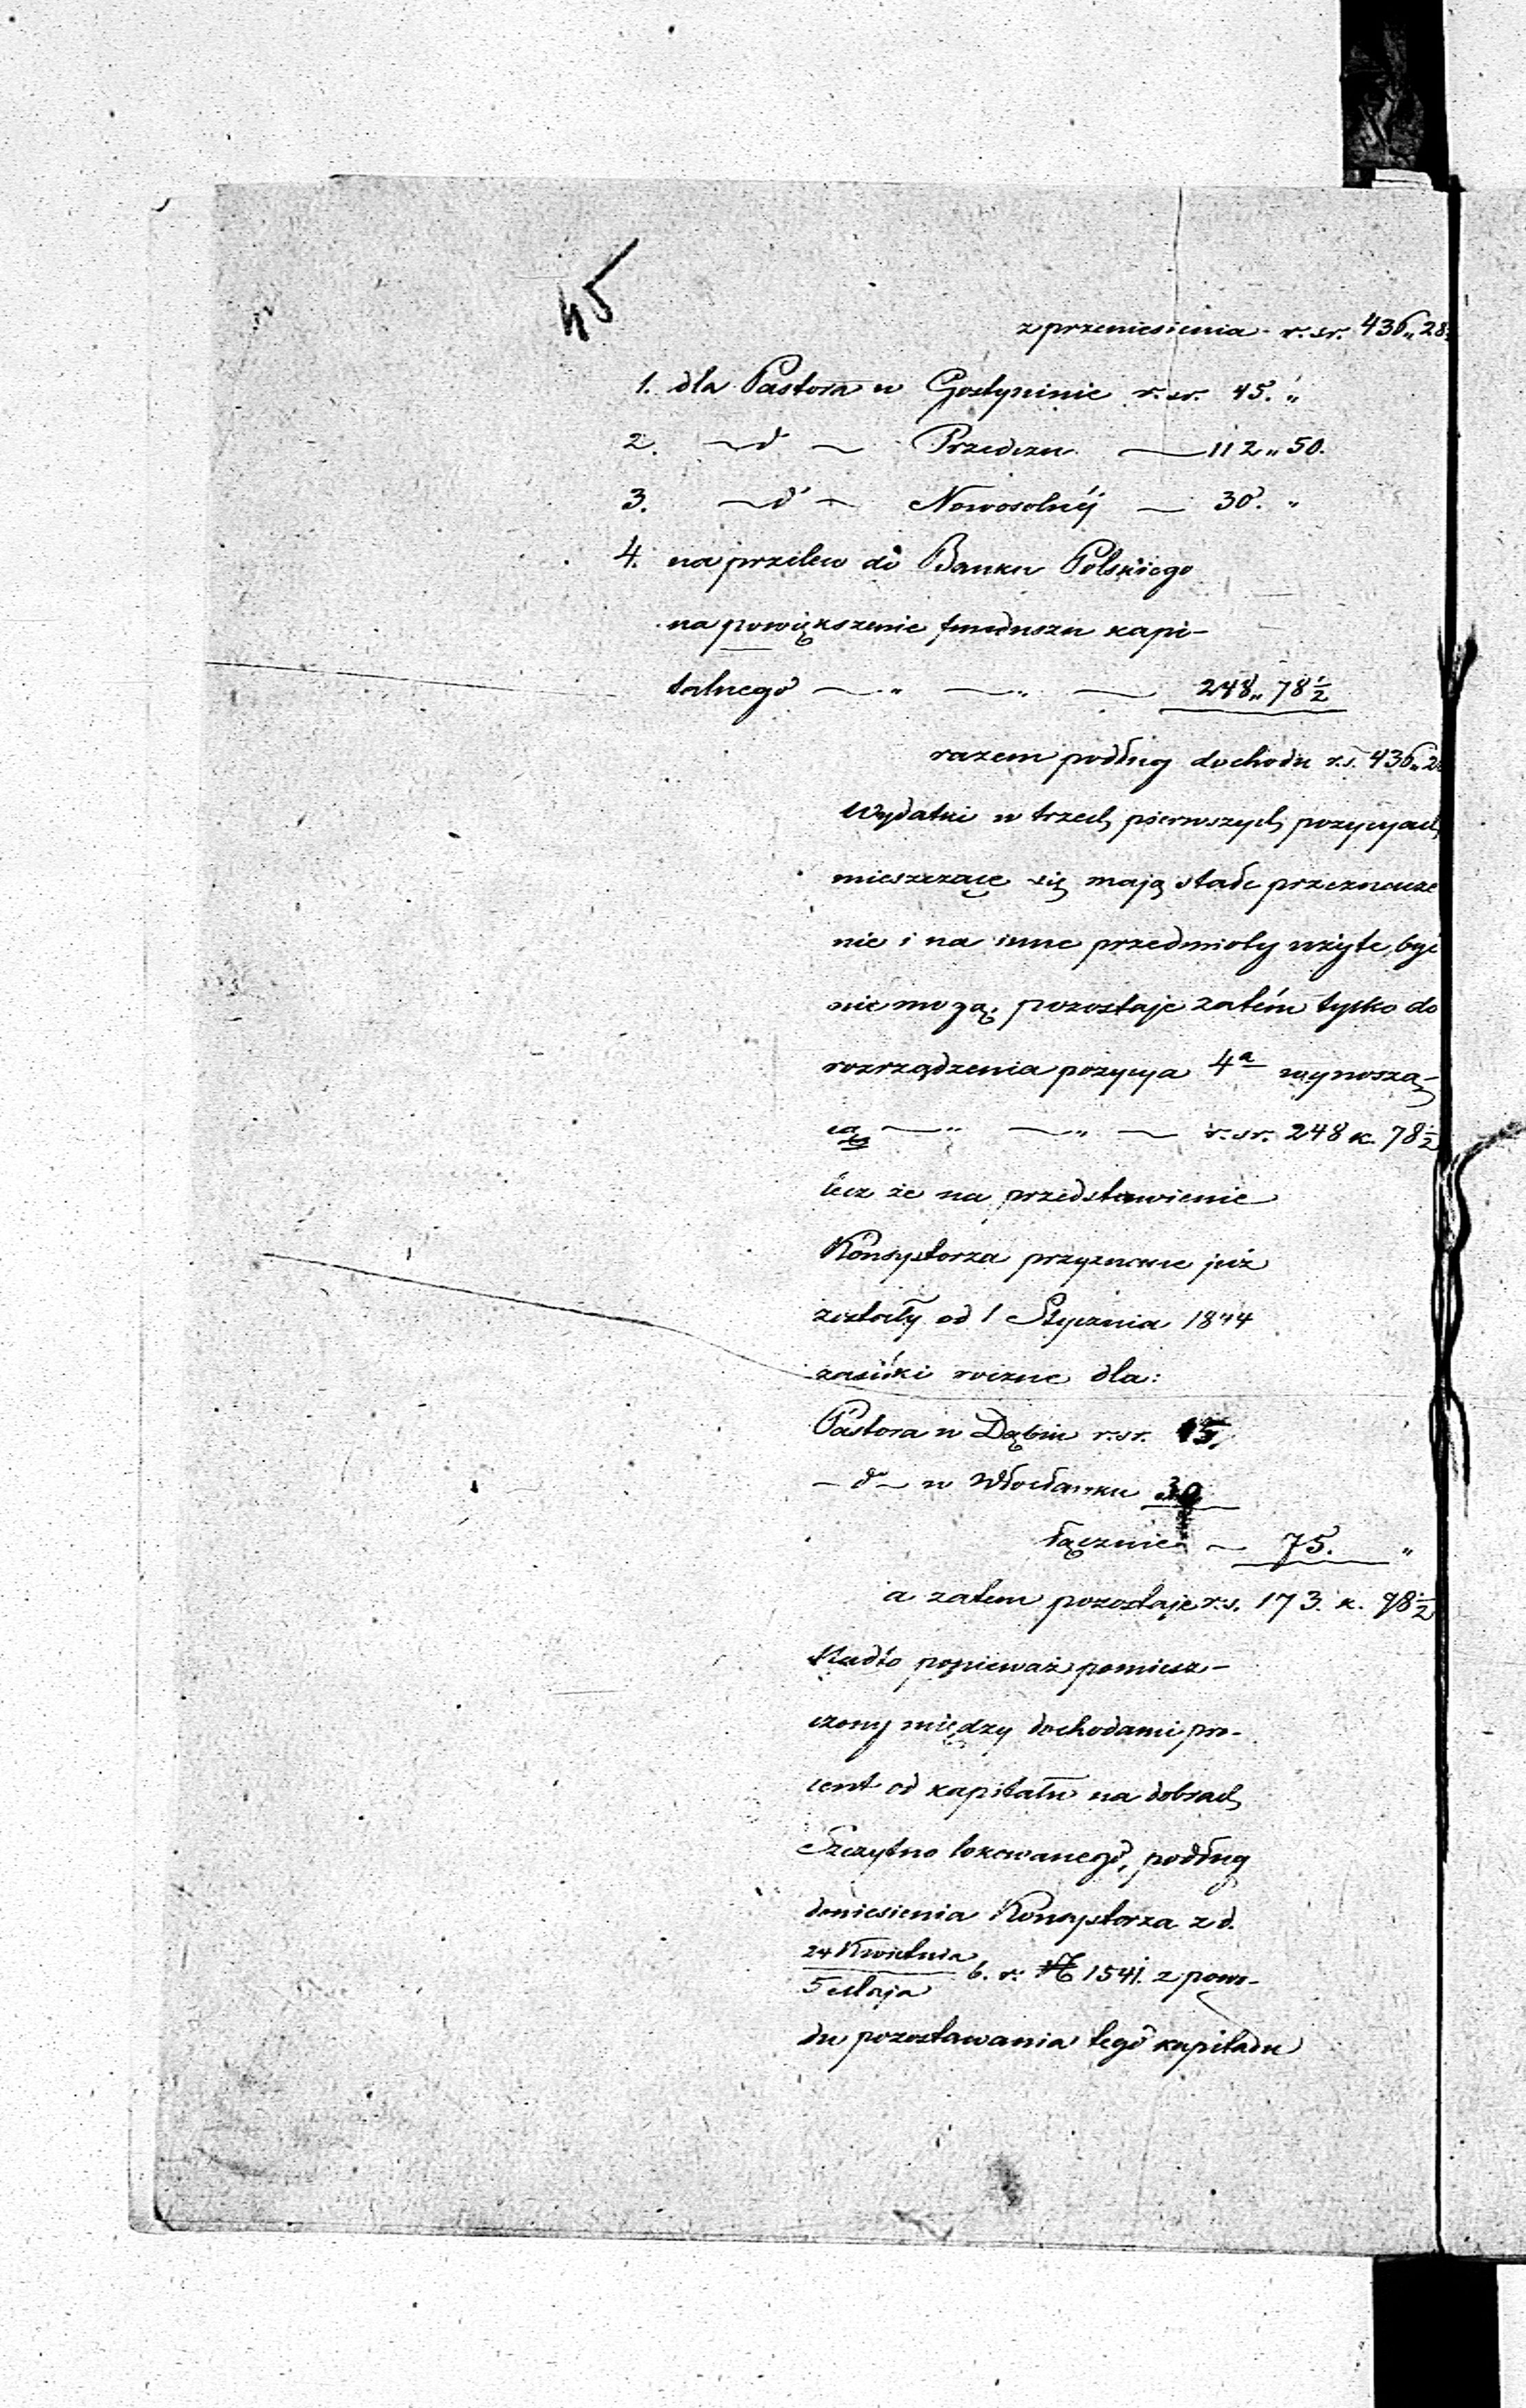 45
z przeniesienia - r. sr. 436 „ 28
1. dla Pastora w Gostyninie r. sr. 45. „
2. — d° — Przedczu — 112 „ 50.
3. — d° — Nowosolnéj — 30. „
4. na przelew do Banku Polskiego
na powiększenie funduszu kapi-
talnego — „ — „ — 248 „ 78 ½
razem podług dochodu r. s. 436 „ 2
Wydatki w trzech pierwszych pozycyach
mieszczące się mają stałe przeznacze
nie i na inne przedmioty użyte być
nie mogą, pozostaje zatém tylko do
rozrządzenia pozycya 4a wynoszą-
ca — „ — „ — r. sr. 248 k. 78 ½
lecz że na przedstawienie
Konsystorza przyznane już
zostały od 1 Stycznia 1844
zasiłki roczne dla:
Pastora w Dąbiu r. sr. 45.
— d° — w Włocławku 30
łącznie — 75. „
a zatem pozostaje r. s. 173. k. 78 ½
Nadto ponieważ pomiesz-
czony między dochodami pro-
cent od kapitału na dobrach
Szczytno lokowanego, podług
doniesienia Konsystorza z d.
24 Kwietnia
5 Maja b. r. № 1541. z powo-
du pozostawania tego kapitału